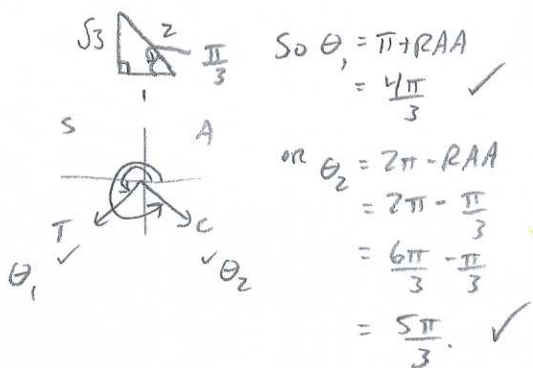 √3 2 π/3
1
S A
T C
θ₁ ✓ ✓ θ₂
So θ₁ = π + RAA
= 4π/3 ✓
or θ₂ = 2π - RAA
= 2π - π/3
= 6π/3 - π/3
= 5π/3. ✓